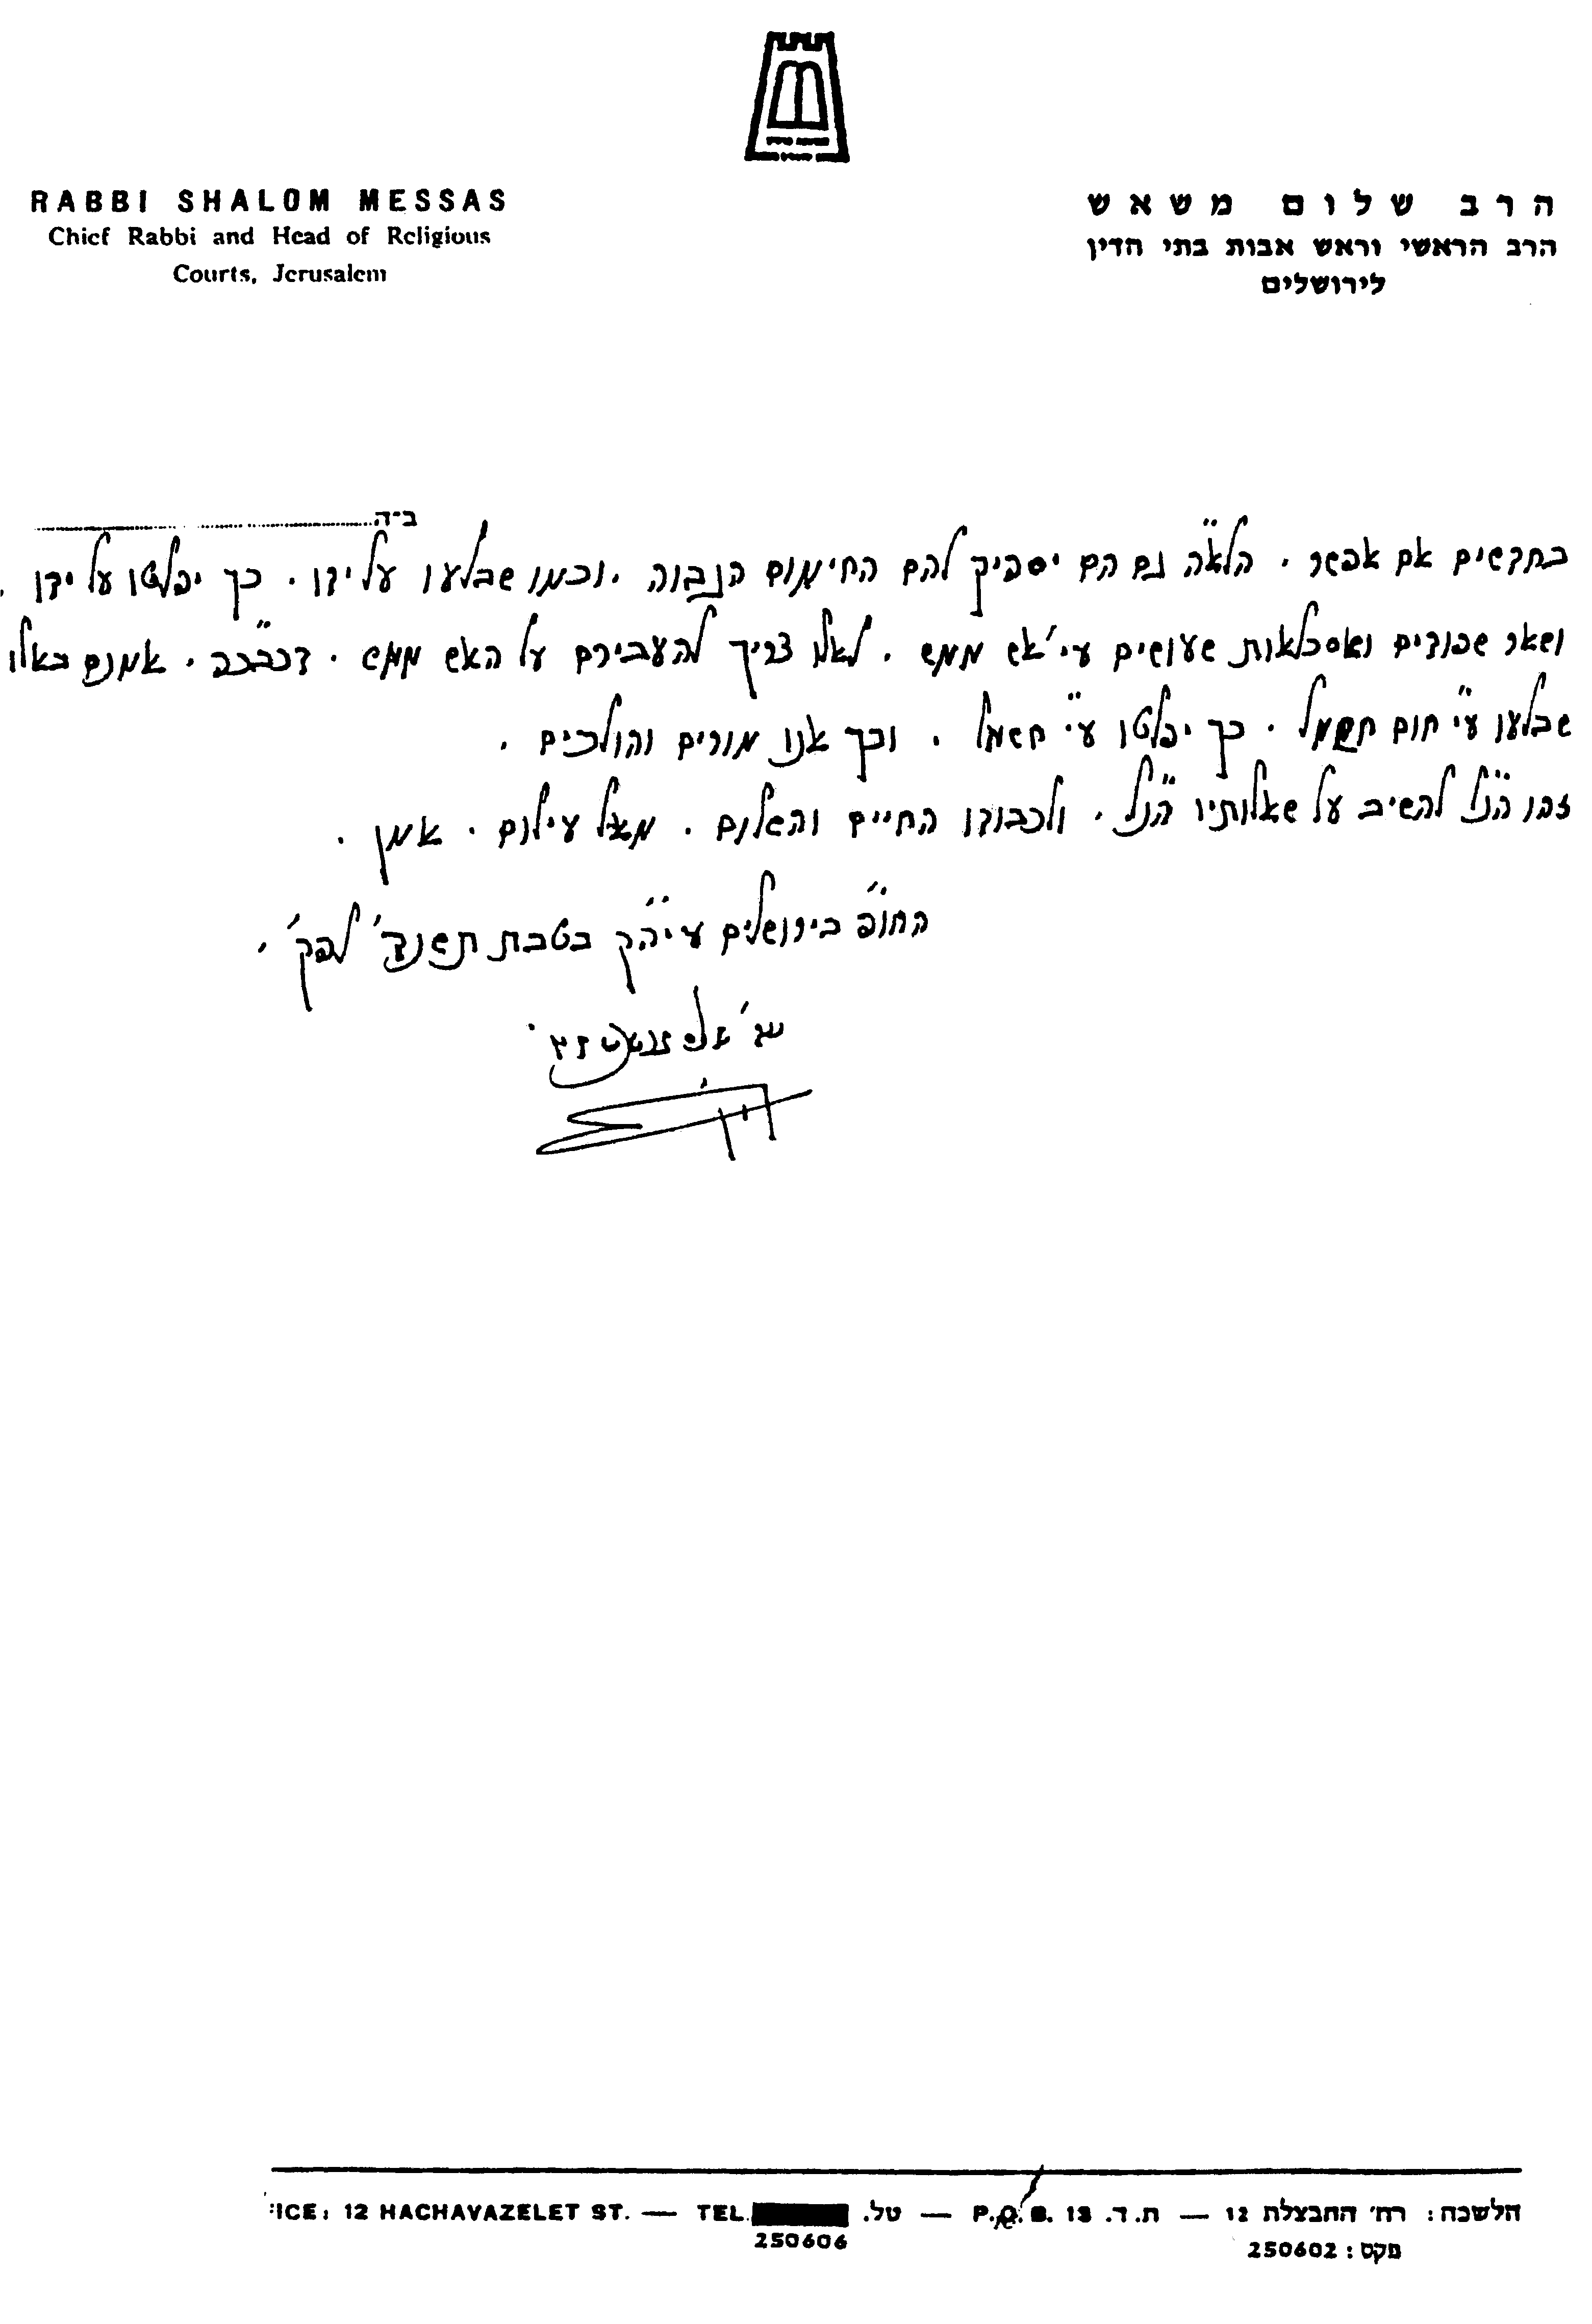 RABBI SHALOM MESSAS
Chief Rabbi and Head of Religious
Courts, Jerusalem
הרב שלום משאש
הרב הראשי וראש אבות בתי הדין
לירושלים
ב״ה
בחדשים אם אפשר. הלא״ה גם הם יספיק להם החימום הגבוה. וכמו שבלעו על ידו. כך יפלטו על ידו.
ושאר שפודים ואסכלאות שעושים ע״י אש ממש. לאלו צריך להעבירם על האש ממש. דכבכ״פ. אמנם באלו
שבלעו ע״י חום חשמל. כך יפלטו ע״י חשמל. וכך אנו מורים והולכים.
זהו הנ״ל להשיב על שאלותיו הנ״ל. ולכבודו החיים והשלום. מאל עילום. אמן.
החו״פ בירושלים עיה״ק בטבת תשנד׳ לפק׳.
ע׳ שלום משאש
OFFICE: 12 HACHAVAZELET ST. — TEL. טל. — P.O.B. 13 ת.ד. — הלשכה: רח׳ החבצלת 12
250606
פקס: 250602